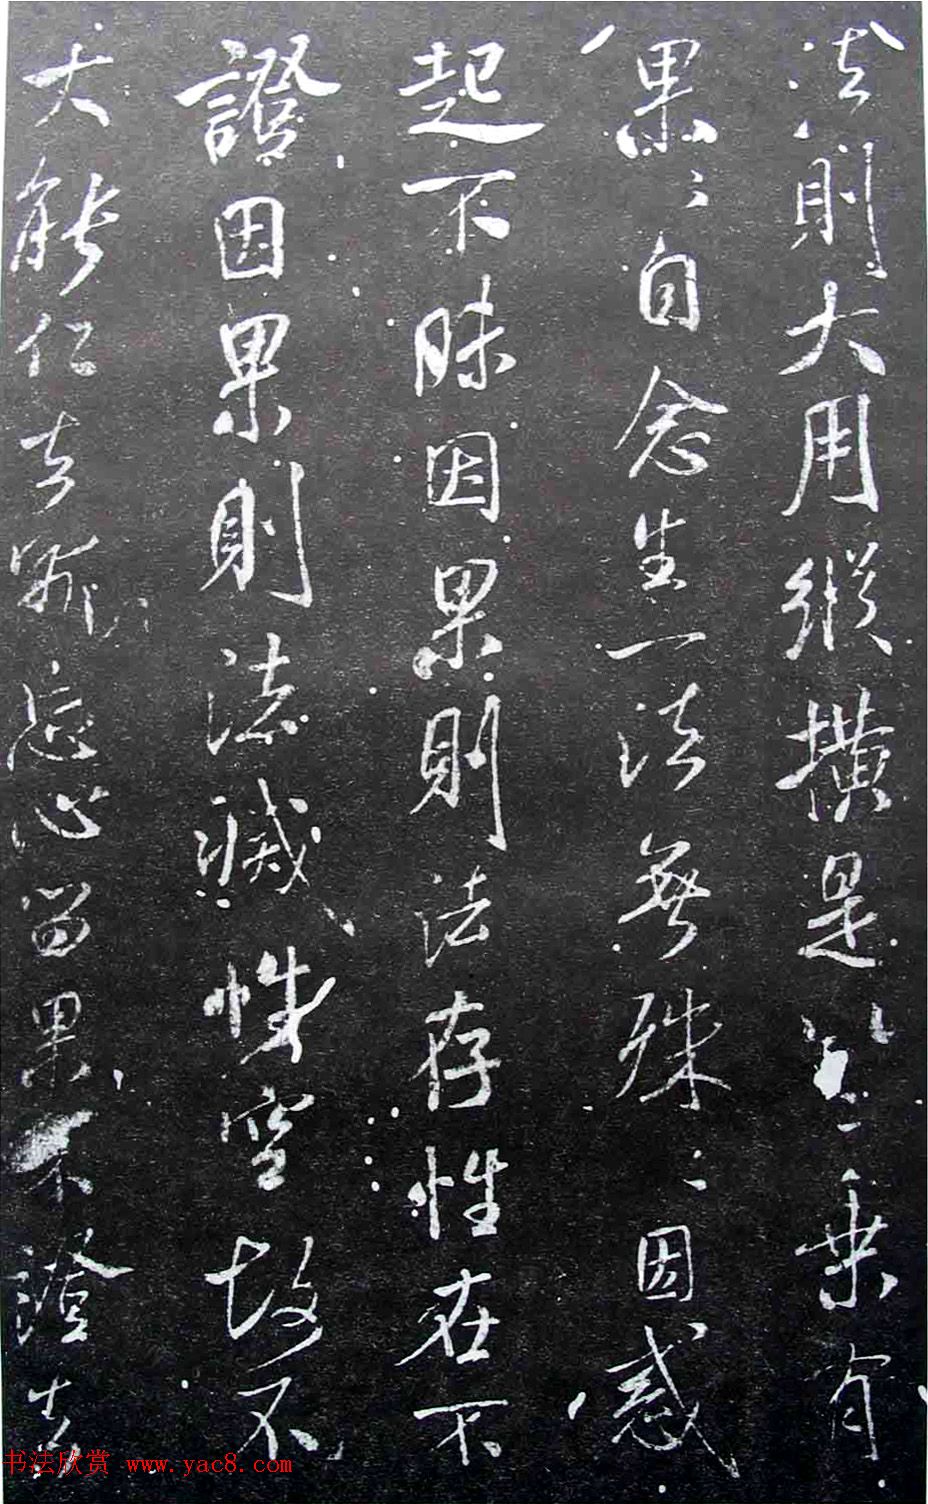 法則大用縱橫是以乘有
果〻自念生一法無殊〻因感
起不昧因果則法存性在不
證因果則法滅性空故不
大能仁忘心留果不證
书法欣赏 www.yac8.com